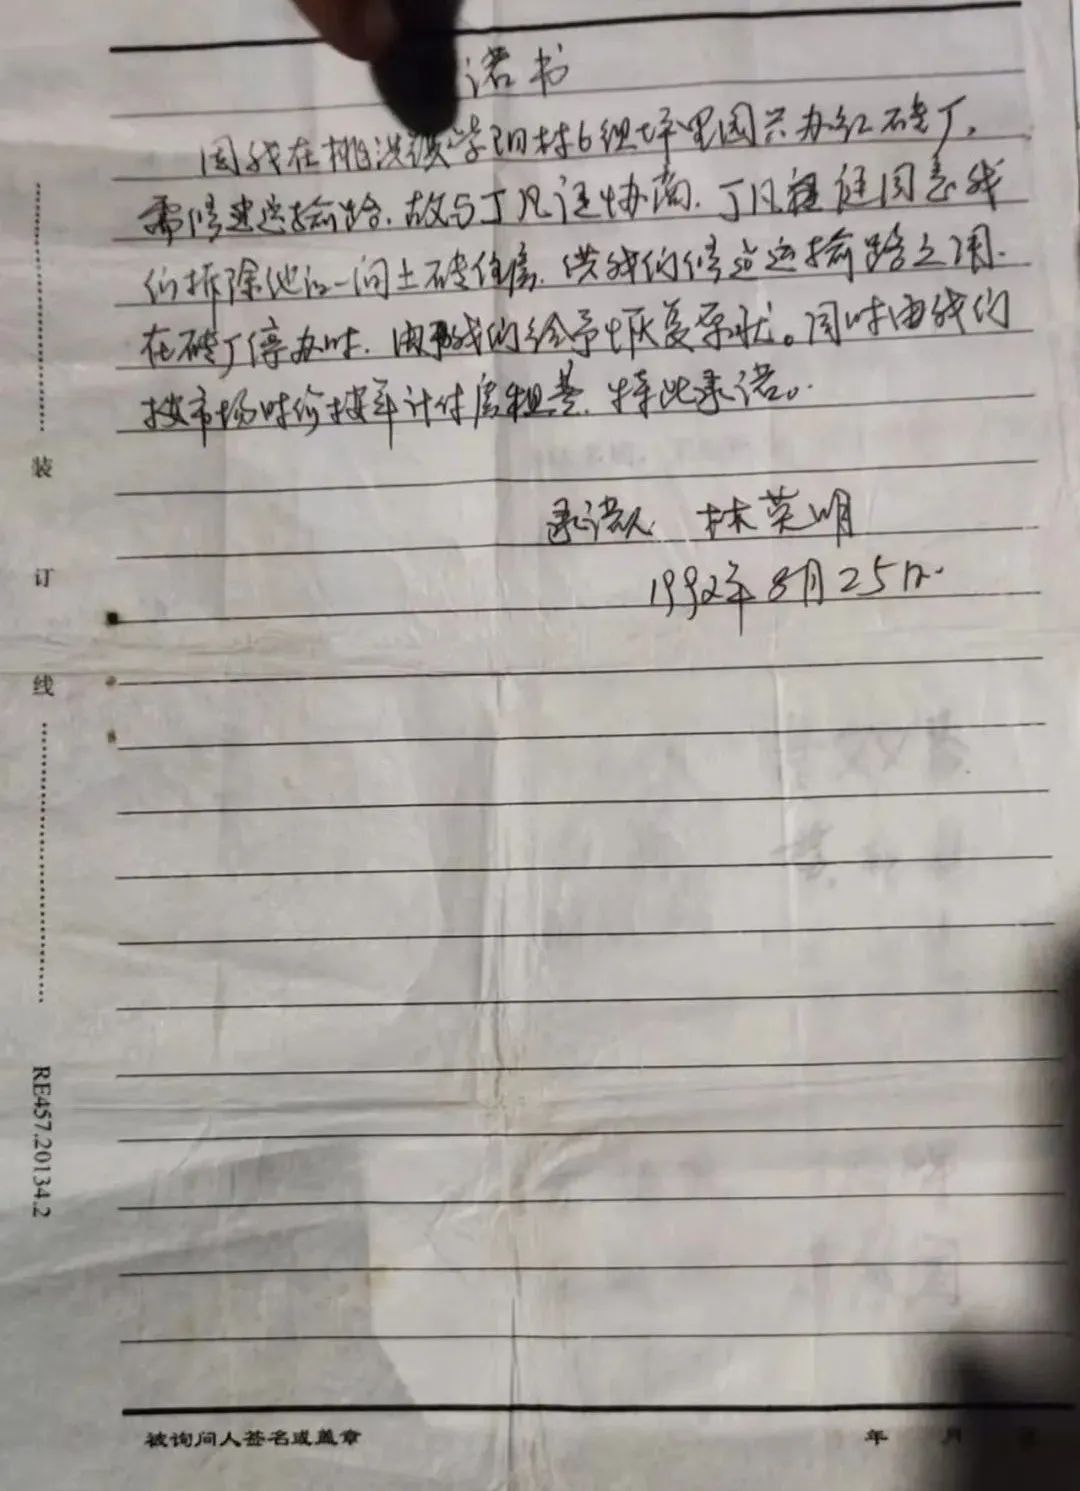 诺书
因我在桃洪镇学明村6组坪里园兴办红砖厂,
需修建运输路,故与丁凡证协商,丁凡程廷同志我
们拆除他的一间土砖住房,供我们修造运输路之用.
在砖厂停办时,由我们给予恢复原状。同时由我们
按市场时价按年计付房租费,特此承诺。
承诺人 林英明
1992年8月25日.
装
订
线
RE457.20134.2
被询问人签名或盖章
年 月